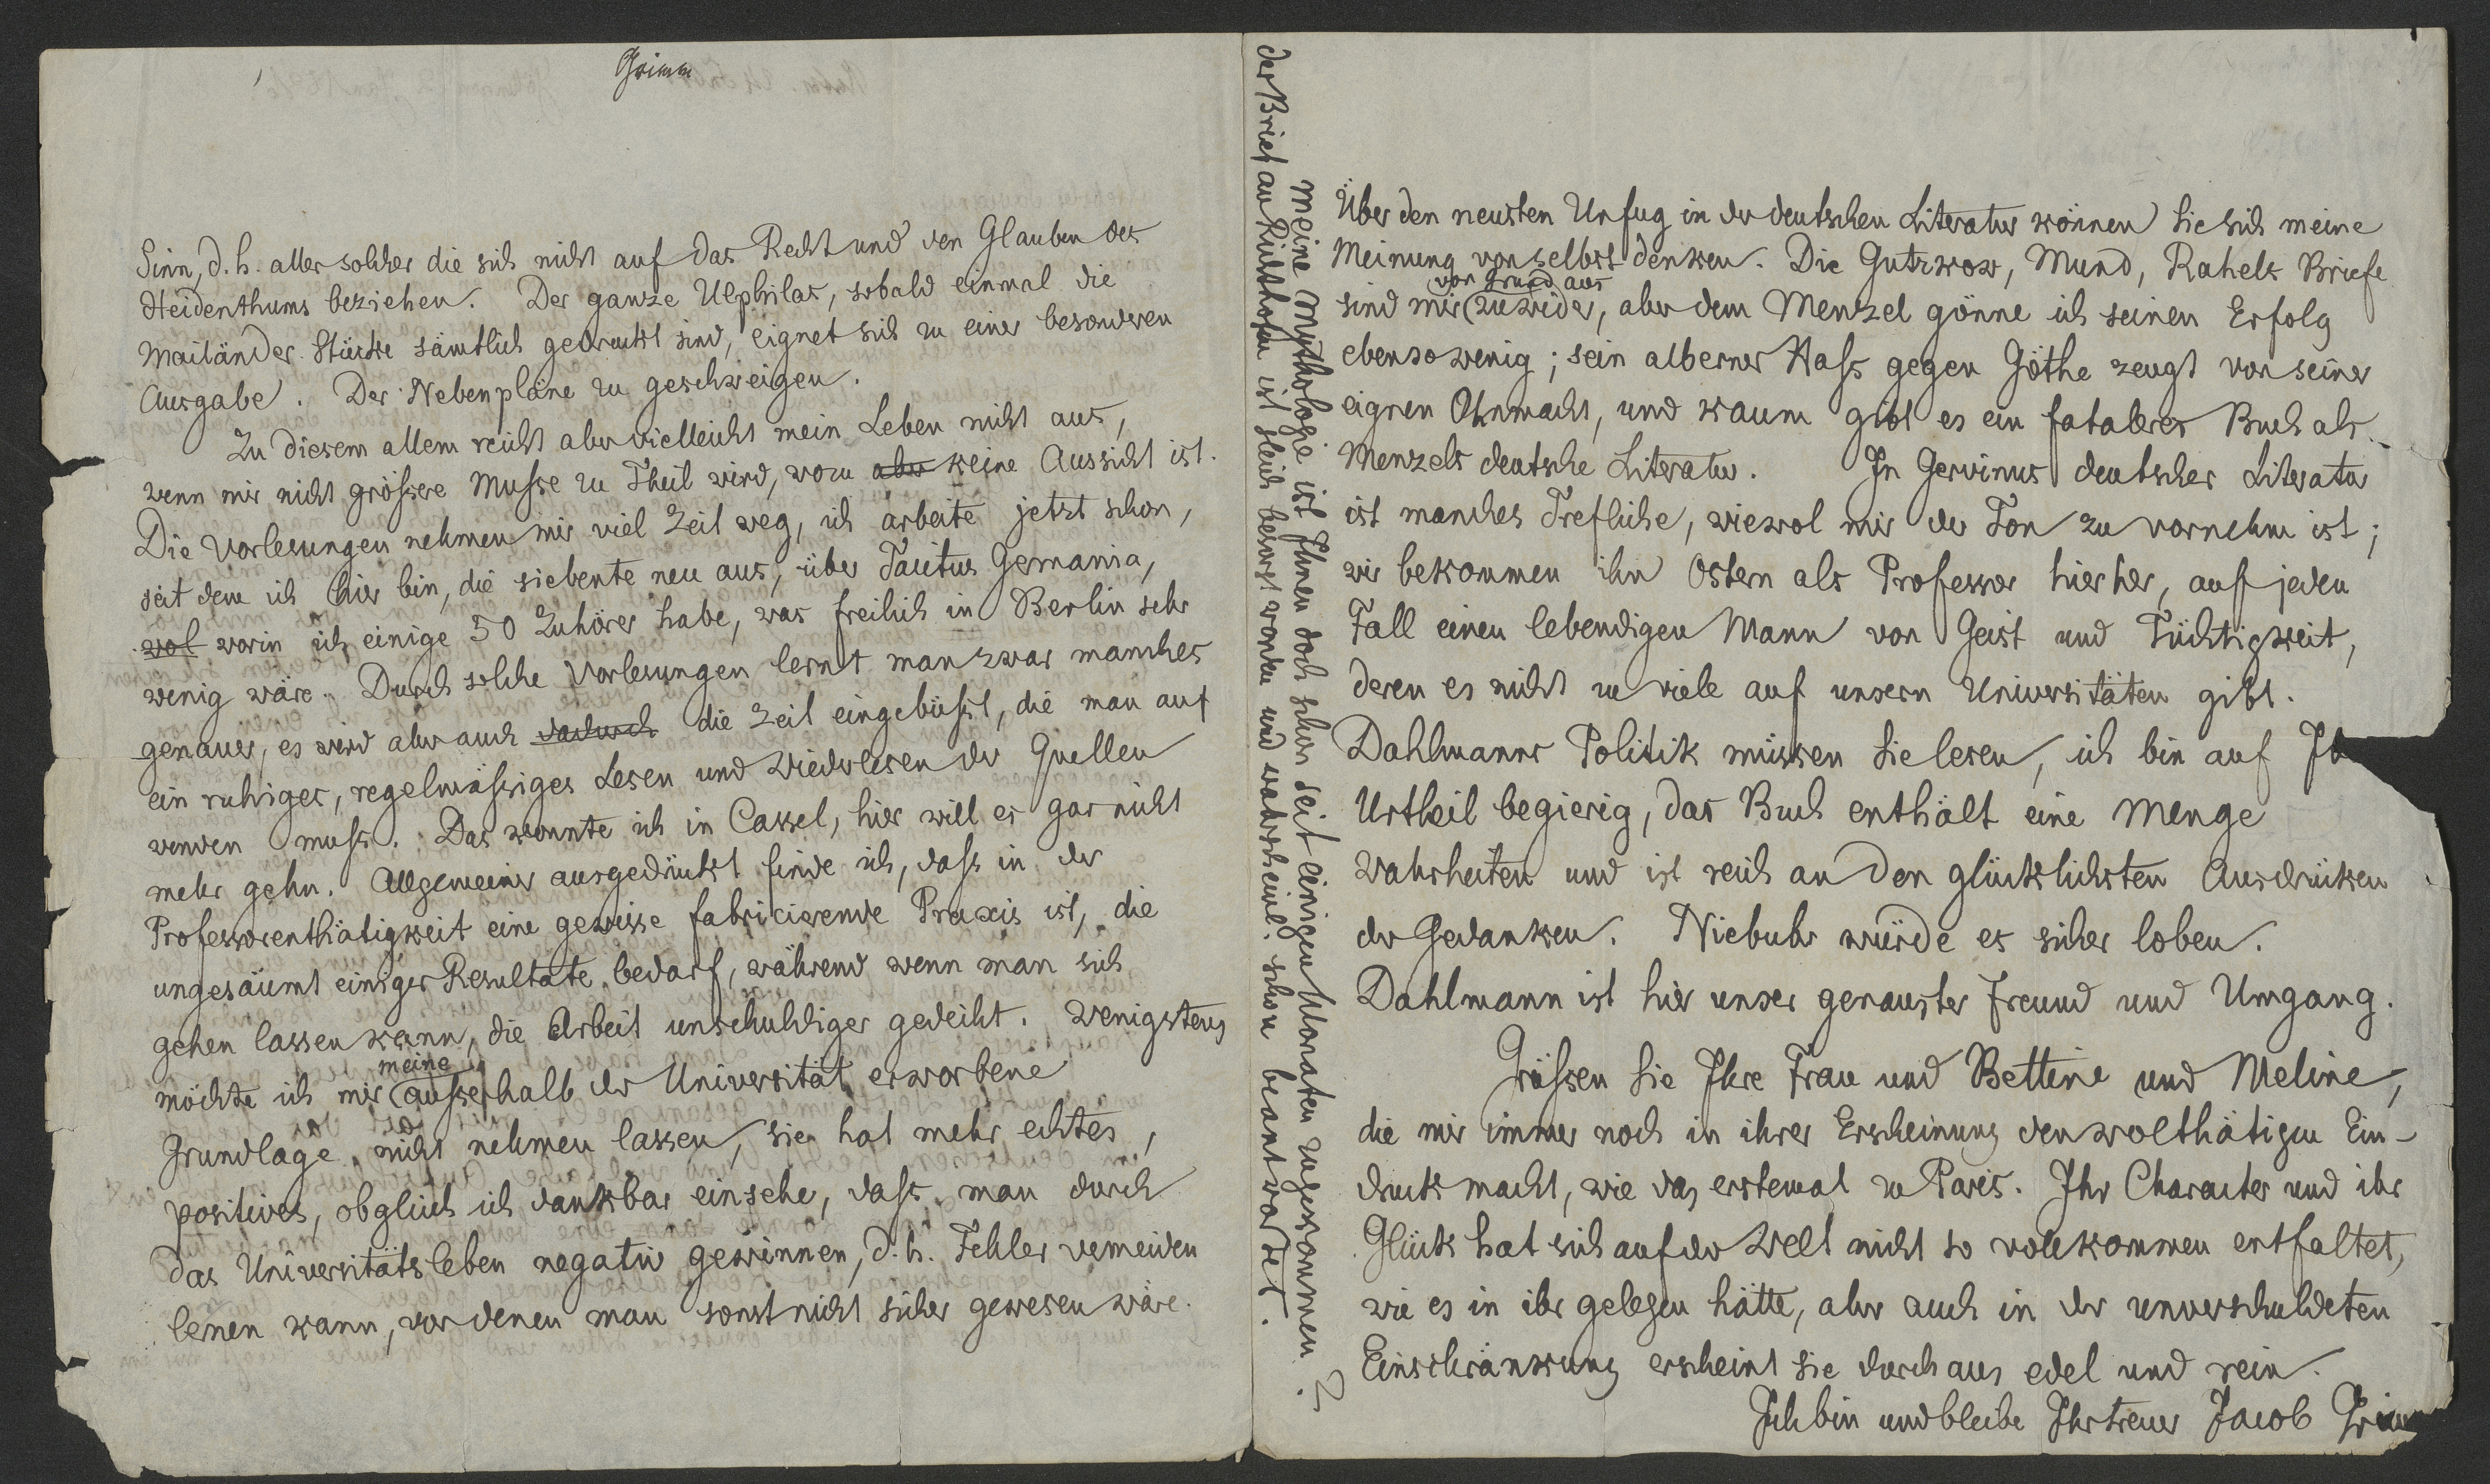 Grimm
Sinn, d. h. aller solcher die sich nicht auf das Recht und den Glauben des
Heidenthums beziehen. Der ganze Ulphilas, sobald einmal die
Mailänder Stücke sämtlich gedruckt sind, eignet sich zu einer besonderen
Ausgabe. Der Nebenpläne zu geschweigen.
Zu diesem allem reicht aber vielleicht mein Leben nicht aus,
wenn mir nicht grössere Musse zu Theil wird, wozu aber keine Aussicht ist.
Die Vorlesungen nehmen mir viel Zeit weg, ich arbeite jetzt schon,
seit dem ich hier bin, die siebente neu aus, über Tacitus Germania,
wol worin ich einige 50 Zuhörer habe, was freilich in Berlin sehr
wenig wäre. Durch solche Vorlesungen lernt man zwar manches
genauer, es wird aber auch dadurch die Zeit eingebüsst, die man auf
ein ruhiges, regelmässiges Lesen und Wiederlesen der Quellen
wenden muss. Das konnte ich in Cassel, hier will es gar nicht
mehr gehn. Allgemeiner ausgedrückt finde ich, dass in der
Professorenthätigkeit eine gewisse fabricirende Praxis ist, die
ungesäumt einiger Resultate bedarf, während wenn man sich
gehen lassen kann, die Arbeit unschuldiger gedeiht. Wenigstens
meine
möchte ich mir ausserhalb der Universität erworbene
Grundlage nicht nehmen lassen, sie hat mehr echtes,
positives, obgleich ich dankbar einsehe, dass man durch
das Universitätsleben negativ gewinnen, d. h. Fehler vermeiden
lernen kann, vor denen man sonst nicht sicher gewesen wäre.
der Brief an Richthofen ist gleich besorgt worden und wahrscheinl. schon beantwortet.
Meine Mythologie ist Ihnen doch schon seit einigen Monaten zugekommen?
Über den neusten Unfug in der deutschen Literatur können Sie sich meine
Meinung von selbst denken. Die Gutzkow, Mund, Rahels Briefe
von Grund aus
sind mir zuwider, aber dem Menzel gönne ich seinen Erfolg
ebenso wenig; sein alberner Hass gegen Göthe zeugt von seiner
eignen Ohnmacht, und kaum gibt es ein fataleres Buch als
Menzels deutsche Literatur. In Gervinus deutscher Literatur
ist manches Trefliche, wiewol mir der Ton zu vornehm ist;
wir bekommen ihn Ostern als Professor hierher, auf jeden
Fall einen lebendigen Mann von Geist und Tüchtigkeit,
deren es nicht zu viele auf unsern Universitäten gibt.
Dahlmanns Politik müssen Sie lesen, ich bin auf
Urtheil begierig, das Buch enthält eine Menge
Wahrheiten und ist reich an den glücklichsten Ausdrücken
der Gedanken. Niebuhr würde es sicher loben.
Dahlmann ist hier unser genauster Freund und Umgang.
Grüssen Sie Ihre Frau und Bettine und Meline,
die mir immer noch in ihrer Erscheinung den wolthätigen Ein-
druck macht, wie das erstemal zu Paris. Ihr Character und ihr
Glück hat sich auf der Welt nicht so vollkommen entfaltet,
wie es in ihr gelegen hätte, aber auch in der unverschuldeten
Einschränkung erscheint sie durchaus edel und rein.
Ich bin und bleibe Ihr treuer Jacob Grimm